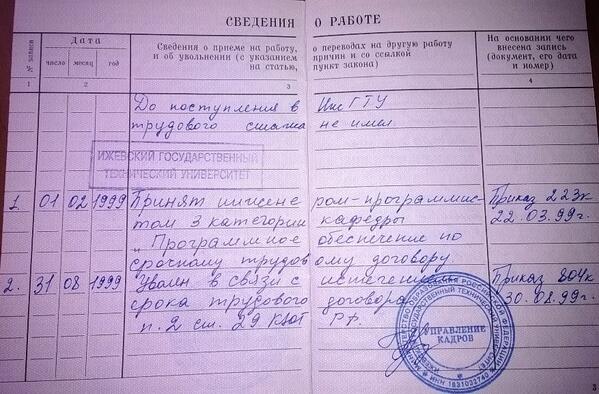 СВЕДЕНИЯ О РАБОТЕ
№ записи
Дата
число месяц год
Сведения о приеме на работу, о переводах на другую работу
и об увольнении (с указанием причин и со ссылкой
на статью, пункт закона)
На основании чего
внесена запись
(документ, его дата
и номер)
1 2 3 4
До поступления в ИжГТУ
трудового стажа не имел.
ИЖЕВСКИЙ ГОСУДАРСТВЕННЫЙ
ТЕХНИЧЕСКИЙ УНИВЕРСИТЕТ
1. 01 02 1999 Принят инженером-программис- Приказ 223к
том 3 категории кафедры 22.03.99г.
„Программное обеспечение по
срочному трудовому договору.
2. 31 08 1999 Уволен в связи с истечением Приказ 804к
срока трудового договора 30.08.99г.
п.2 ст. 29 КЗОТ РФ.
УПРАВЛЕНИЕ
КАДРОВ
ИНН 1831032740
3